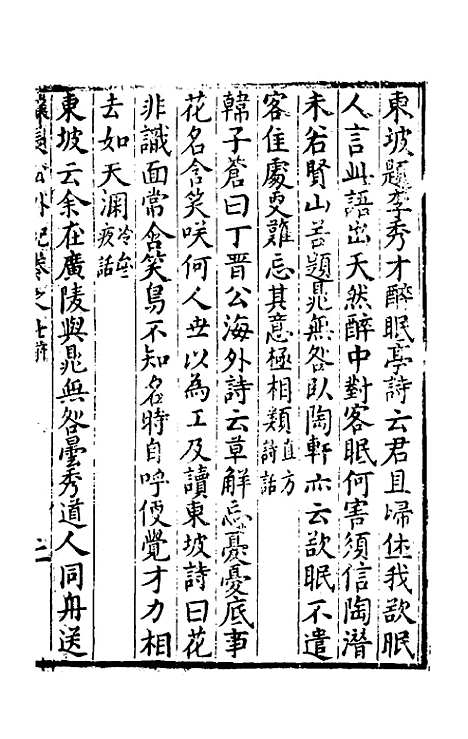 東坡題李秀才醉眠亭詩云君且歸休我欲眠
人言此語出天然醉中對客眠何害須信陶潛
未若賢山谷題晁無咎臥陶軒亦云欲眠不遣
客住處更難忘其意極相類直方詩話
韓子蒼曰丁晋公海外詩云草解忘憂憂底事
花名含笑咲何人世以為工及讀東坡詩曰花
非識面常含笑鳥不知名時自呼便覺才力相
去如天淵冷齋夜話
東坡云余在廣陵與晁無咎曇秀道人同舟送
外紀卷之